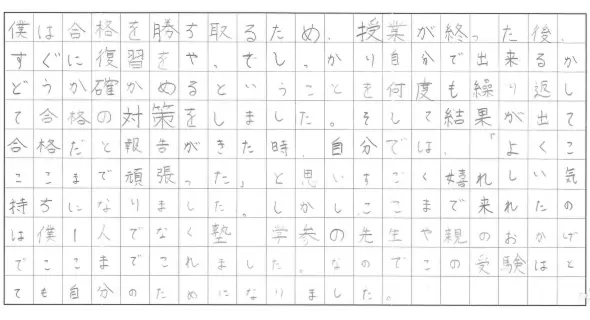 僕は合格を勝ち取るため、授業が終った後、
すぐに復習をやって。しっかり自分で出来るか
どうか確かめるということを何度も繰り返し
て合格の対策をしました。そして結果が出て
合格だと報告がきた時、自分では、「よくこ
ここまで頑張った。」と思いすごく嬉れしい気
持ちになりました。しかしここまで来れたの
は僕1人でなく塾、学参の先生や親のおかげ
でここまでこれました。なのでこの受験はと
ても自分のためになりました。